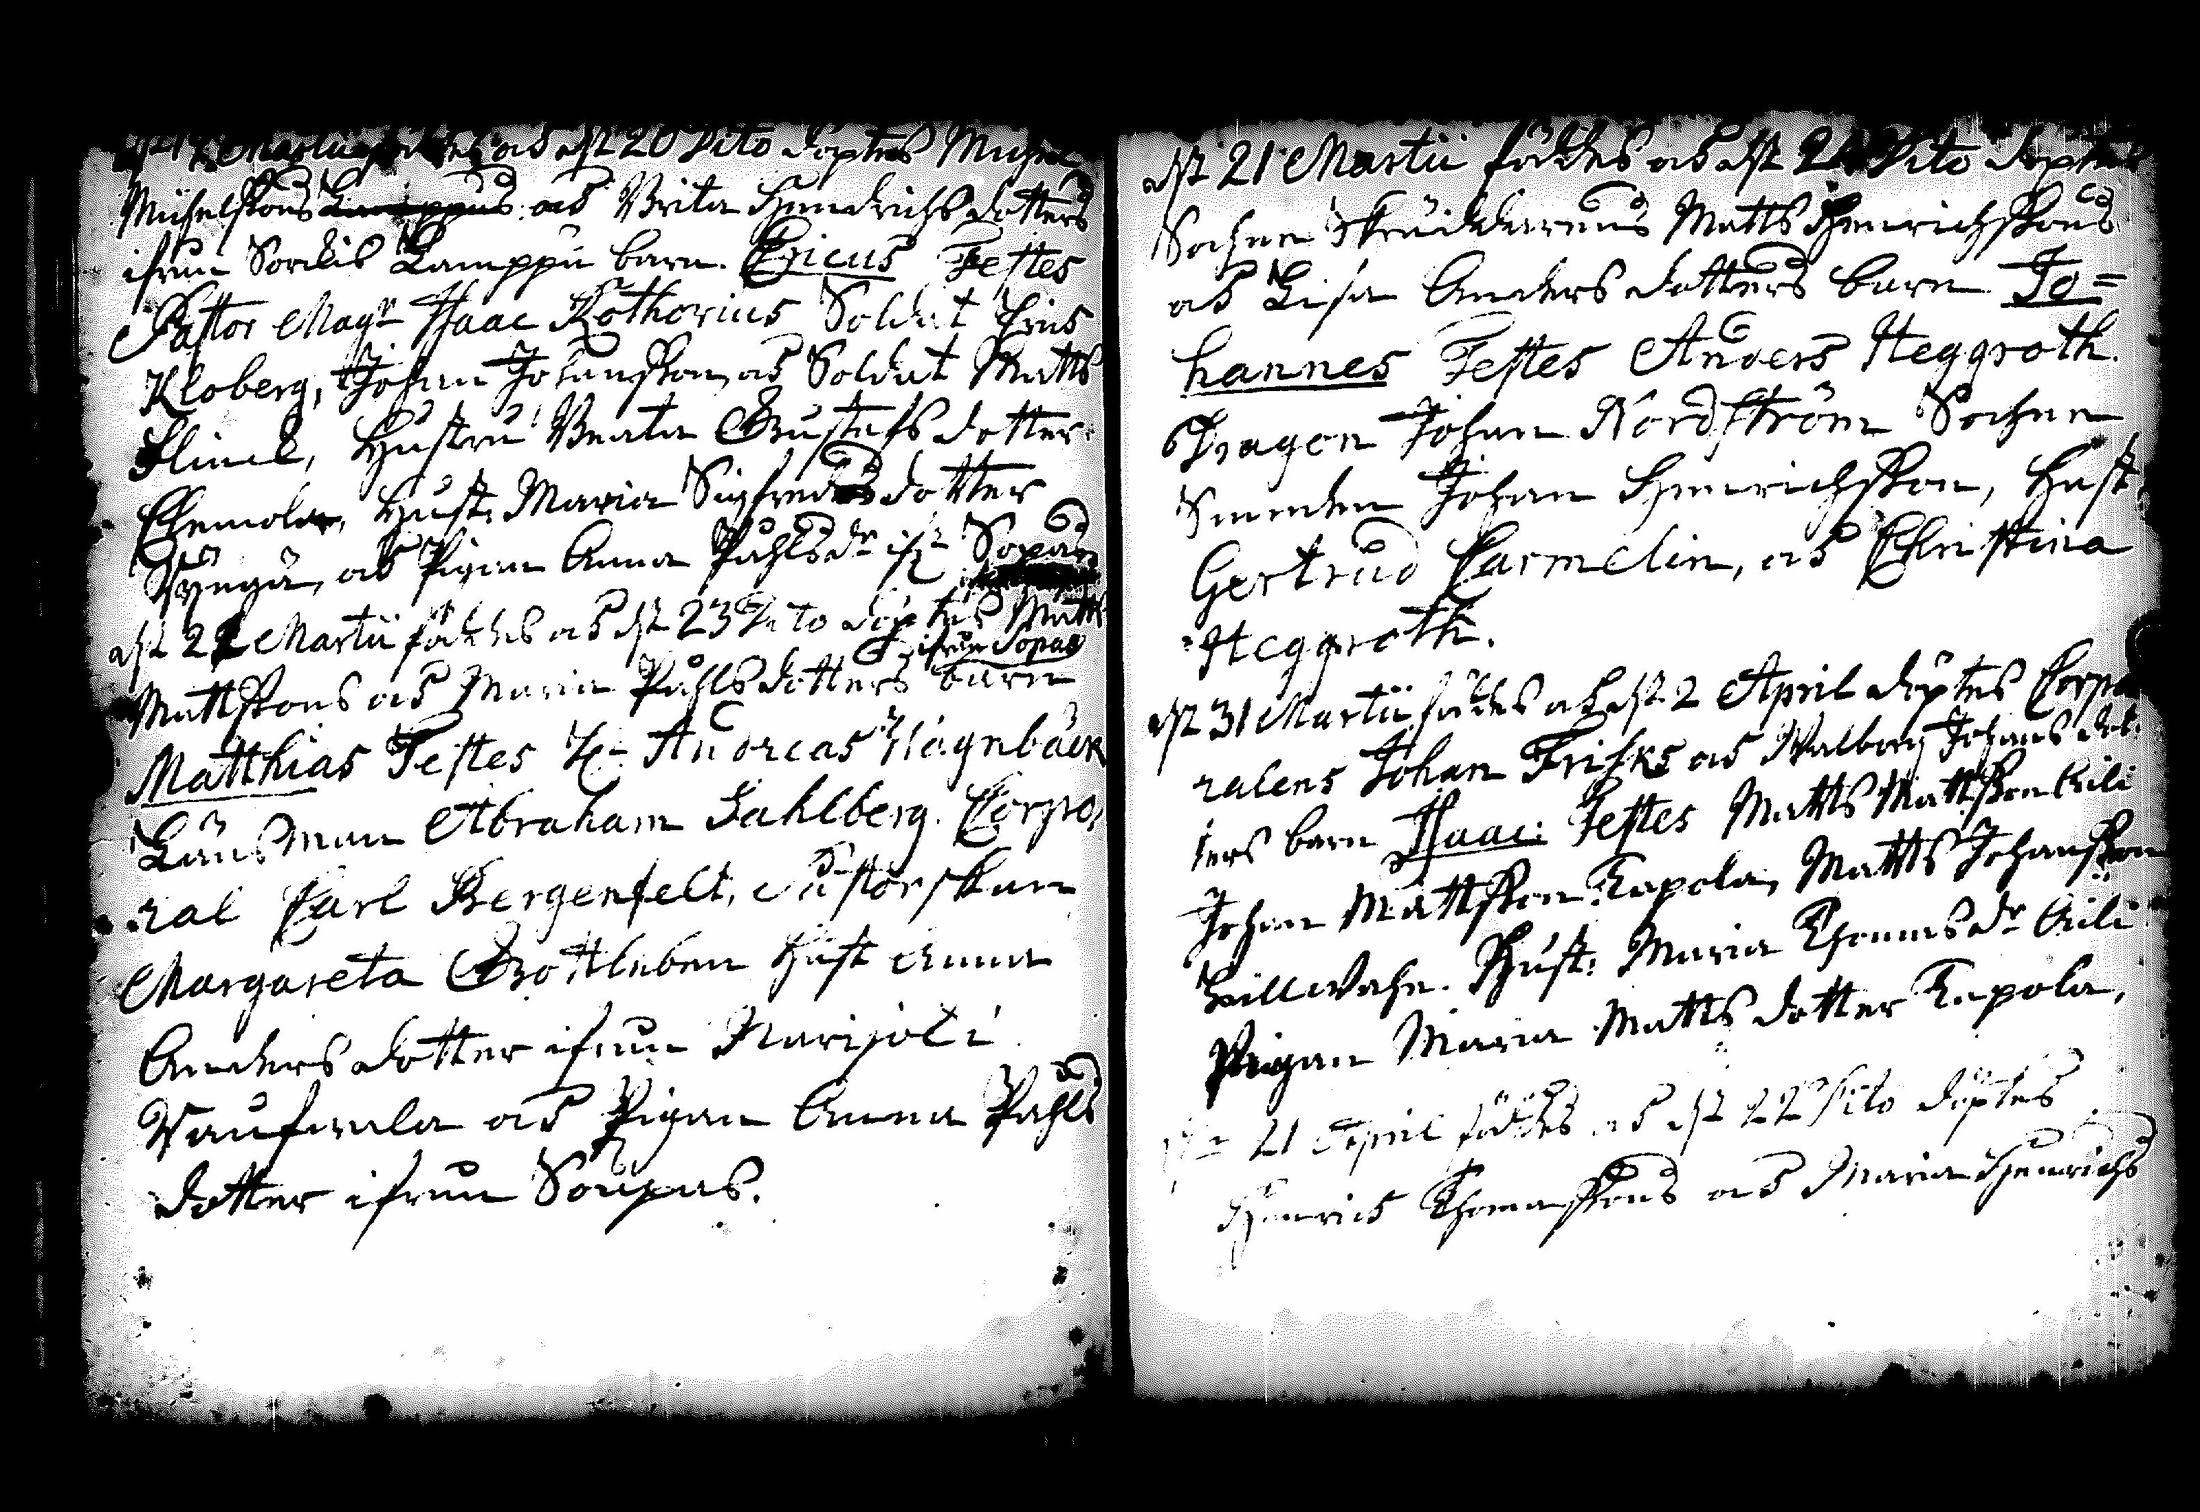 Martii föddes och dn 20 Dito döptes Michel
Michelssons och Brita Hendrichs dotters
ifrån Sorkis Lamppu barn. Ericus Testes
Pastor Magr Isaac Rothovius Soldat
Kloberg, Johan Johansson, och Soldat Matts
Flinck, Hustru Beata Gustafs dotter
Hust: Maria Sigfreds dotter
och Pigan Anna Påhlsdr ifr
dn 22 Martii föddes och dn 23 Dito döptes Matts
ifrån Sopas
Mattssons och Maria Påhlsdotters barn
Matthias Testes H. Andreas Hagnbäck
Länsman Abraham Sahlberg. Corpo,
ral Carl Bergenfelt, Pastorskan
Margareta Gottleben Hust Anna
Anders dotter ifrån Narijoki
och Pigan Anna Påhls
dotter ifrån Soupas.
dn 21 Martii föddes och dn Dito döptes
Sochne Skräddarens Matts Henrichssons
och Lisa Anders dotters barn Jo=
hannes Testes Anders Heggroth.
Dragon Johan Nordström Sochne
Smeden Johan Henrichsson, Hust.
Gertrud Carmelin, och Christina
Heggroth.
dn 31 Martii föddes och dn 2 April döptes Corpo
ralens Johan Frisks och Walborg Johans dot
ters barn Isaac. Testes Matts Mattsson
Johan Mattsson Kapola, Matts Johansson
Hust: Maria Thomasdr
Pigan Maria Matts dotter Kapola,
dn 21 April föddes och dn 22 Dito döptes
Henrich Thomassons och Maria Henrichs